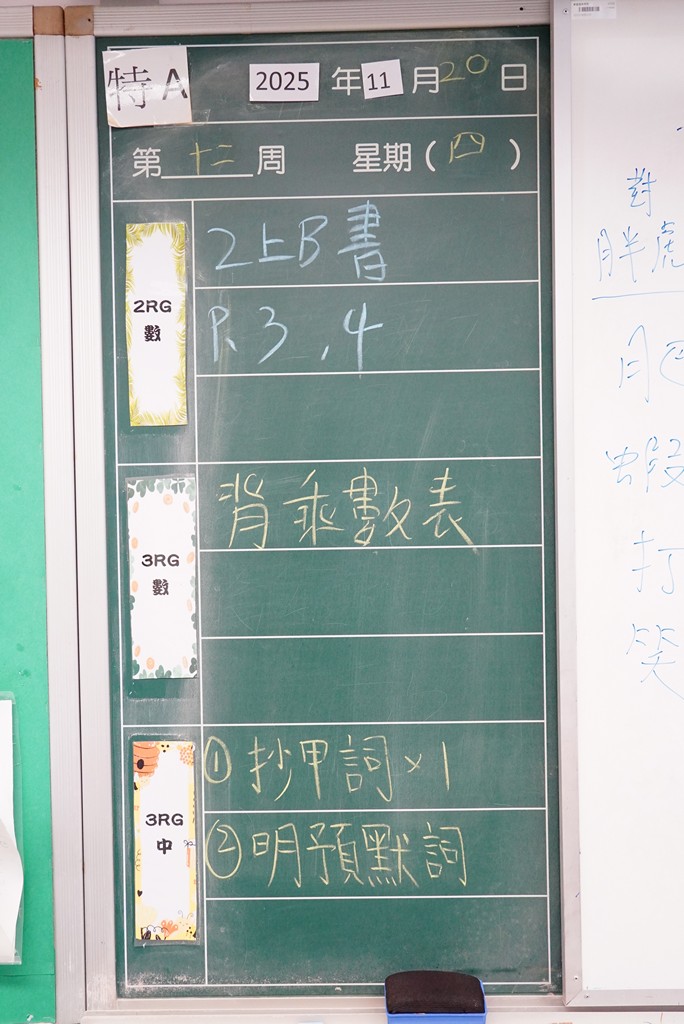 特A 2025 年 11 月 20 日
第 十二 周 星期(四)
2RG 數
2上B書
P. 3 , 4
3RG 數
背乘數表
3RG 中
①抄甲詞×1
②明預默詞
對
胖虎
肥
蝦
打
笑